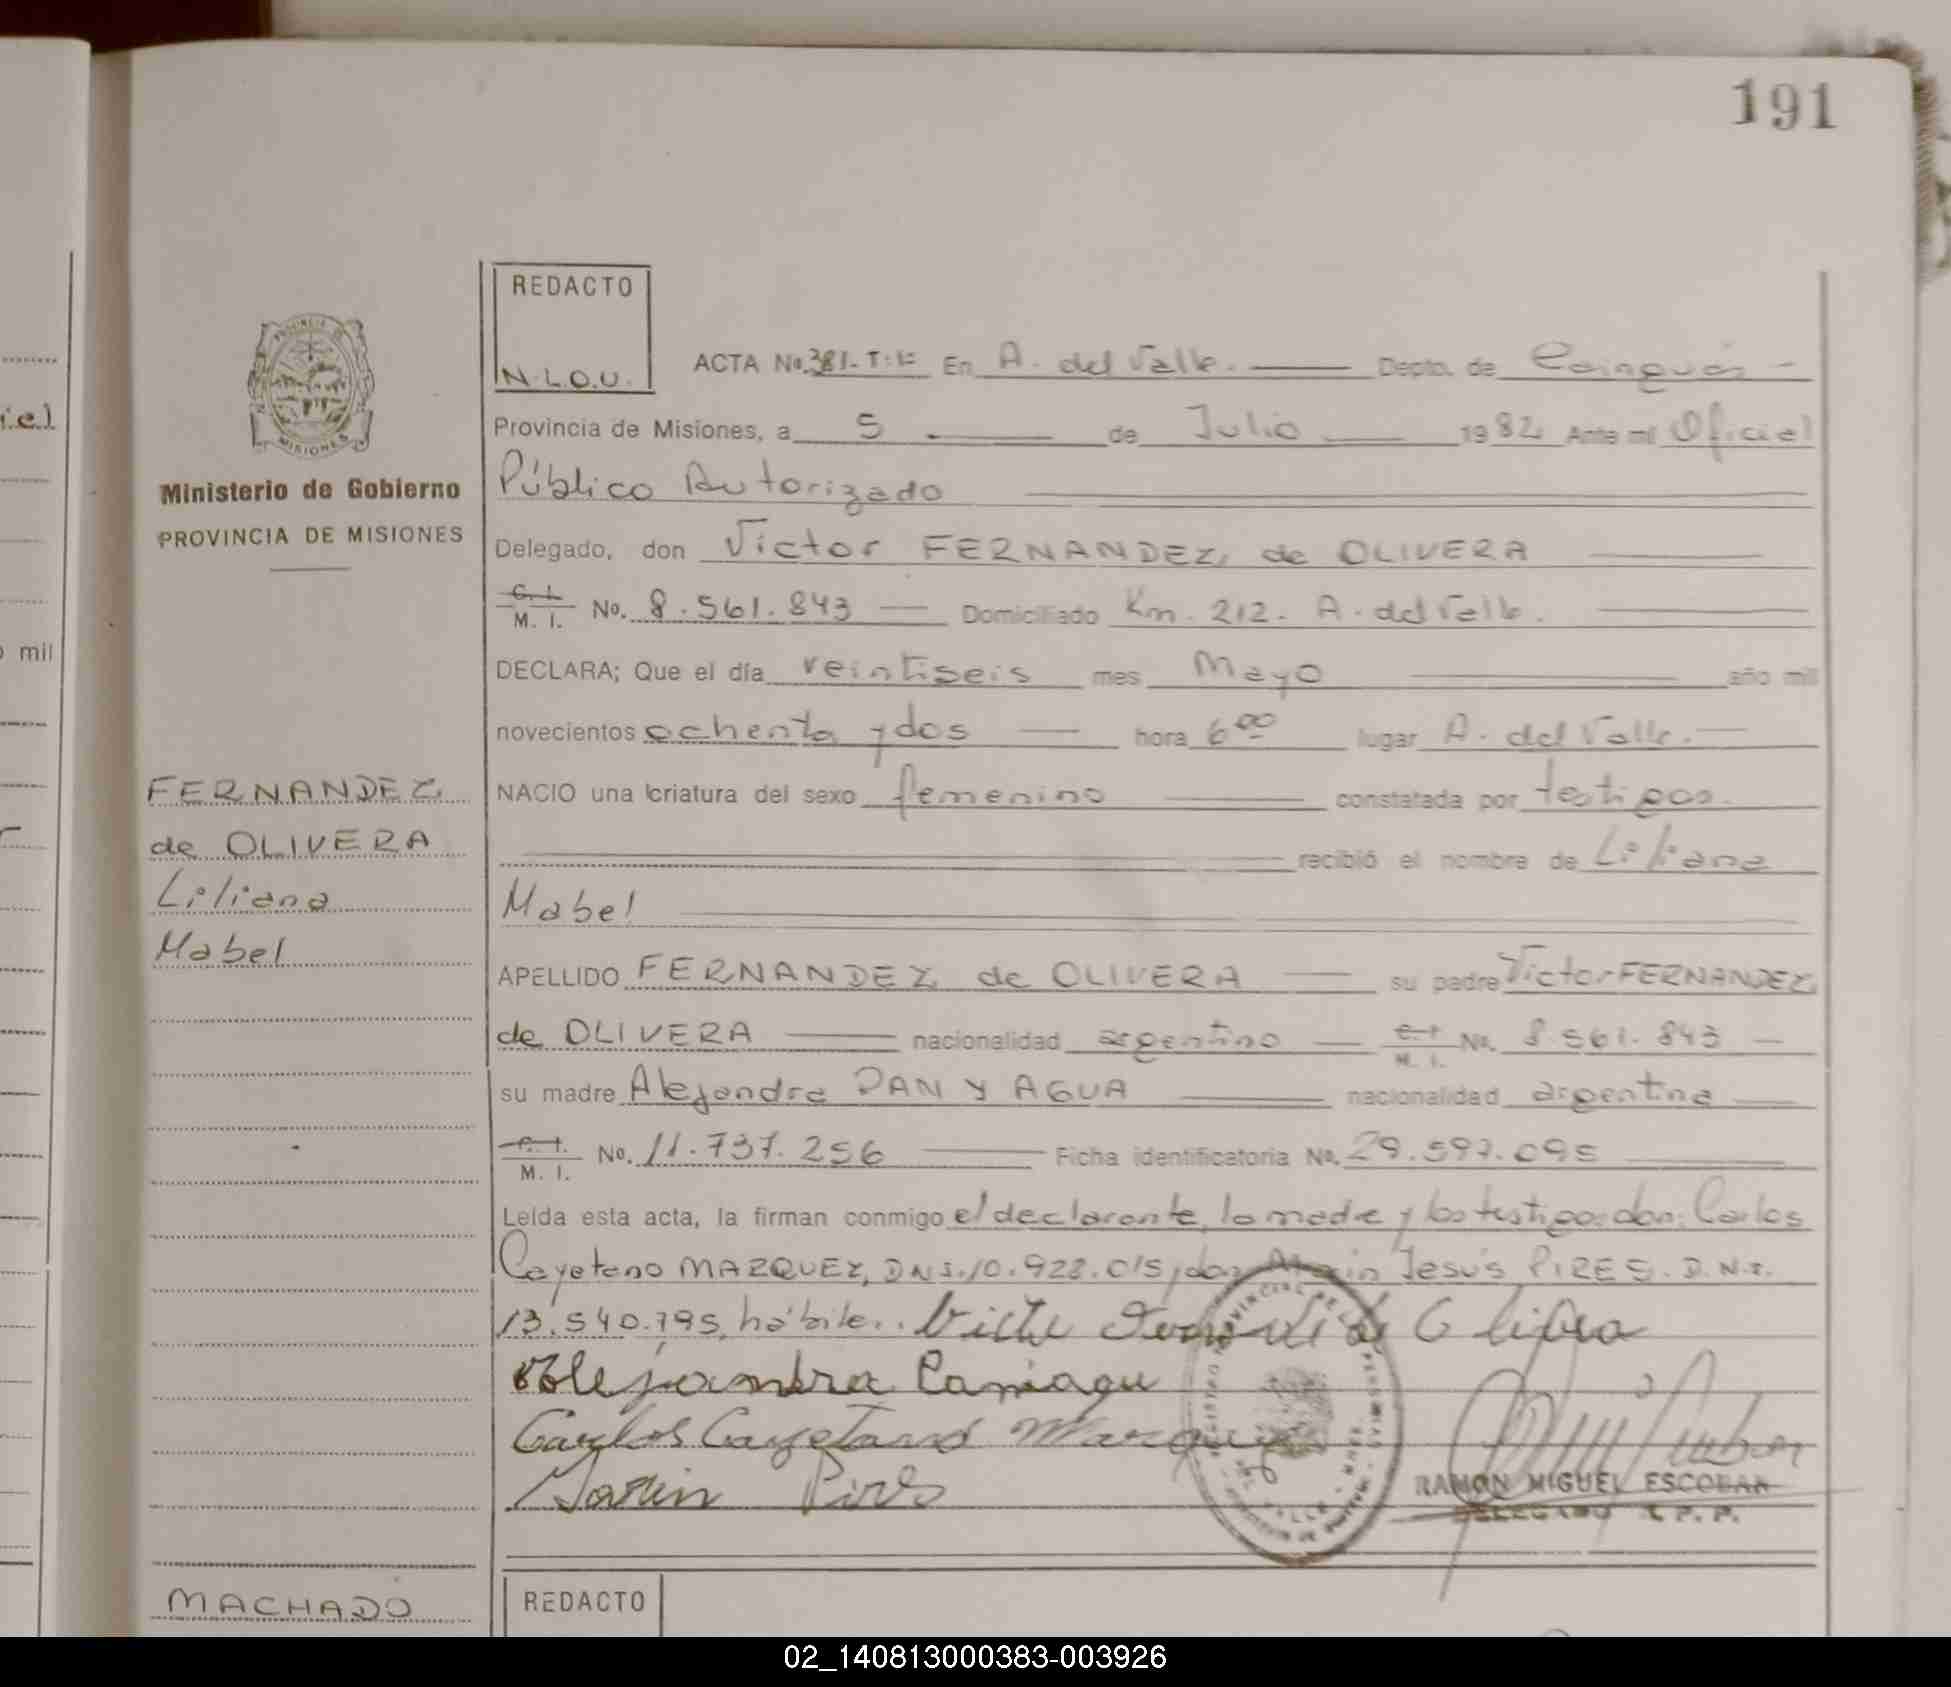 191
REDACTO
N.L.O.U.
ACTA No. 381. T: 1: En A. del Valle. Depto. de Cainguás
Provincia de Misiones, a 5 de Julio 1982 Ante mi Oficial
Público Autorizado
Delegado, don Victor FERNANDEZ de OLIVERA
C. I. M. I. No. 8.561.843 Domiciliado Km. 212. A. del Valle.
DECLARA; Que el día veintiseis mes Mayo año mil
novecientos ochenta y dos hora 6 00 lugar A. del Valle.
NACIO una criatura del sexo femenino constatada por testigos.
recibió el nombre de Liliana
Mabel
APELLIDO FERNANDEZ de OLIVERA su padre Victor FERNANDEZ
de OLIVERA nacionalidad argentino C. I. M. I. No. 8.561.843
su madre Alejandra PAN Y AGUA nacionalidad argentina
C. I. M. I. No. 11.737.256 Ficha identificatoria No. 29.597.095
Leída esta acta, la firman conmigo el declarante, la madre y los testigos: don: Carlos
Cayetano MARQUEZ, D.N.I. 10.922.015, don Jesús PIRES. D.N.I.
13.540.795, hábiles.
Alejandra Paniagu
Carlos Cayetano
Pires
RAMON MIGUEL ESCOBAR
DELEGADO R. P. P.
PROVINCIA DE MISIONES
Ministerio de Gobierno
PROVINCIA DE MISIONES
FERNANDEZ
de OLIVERA
Liliana
Mabel
MACHADO
REDACTO
iel
mil
02_140813000383-003926